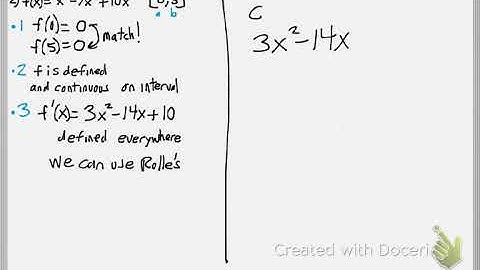 2) f(x)= x³-7x²+10x [0,5]
a b
•1 f(0)= 0
f(5)= 0
match!
•2 f is defined
and continuous on interval
•3 f'(x)= 3x²-14x+10
defined everywhere
We can use Rolle's
C
3x²-14x
Created with Doceri